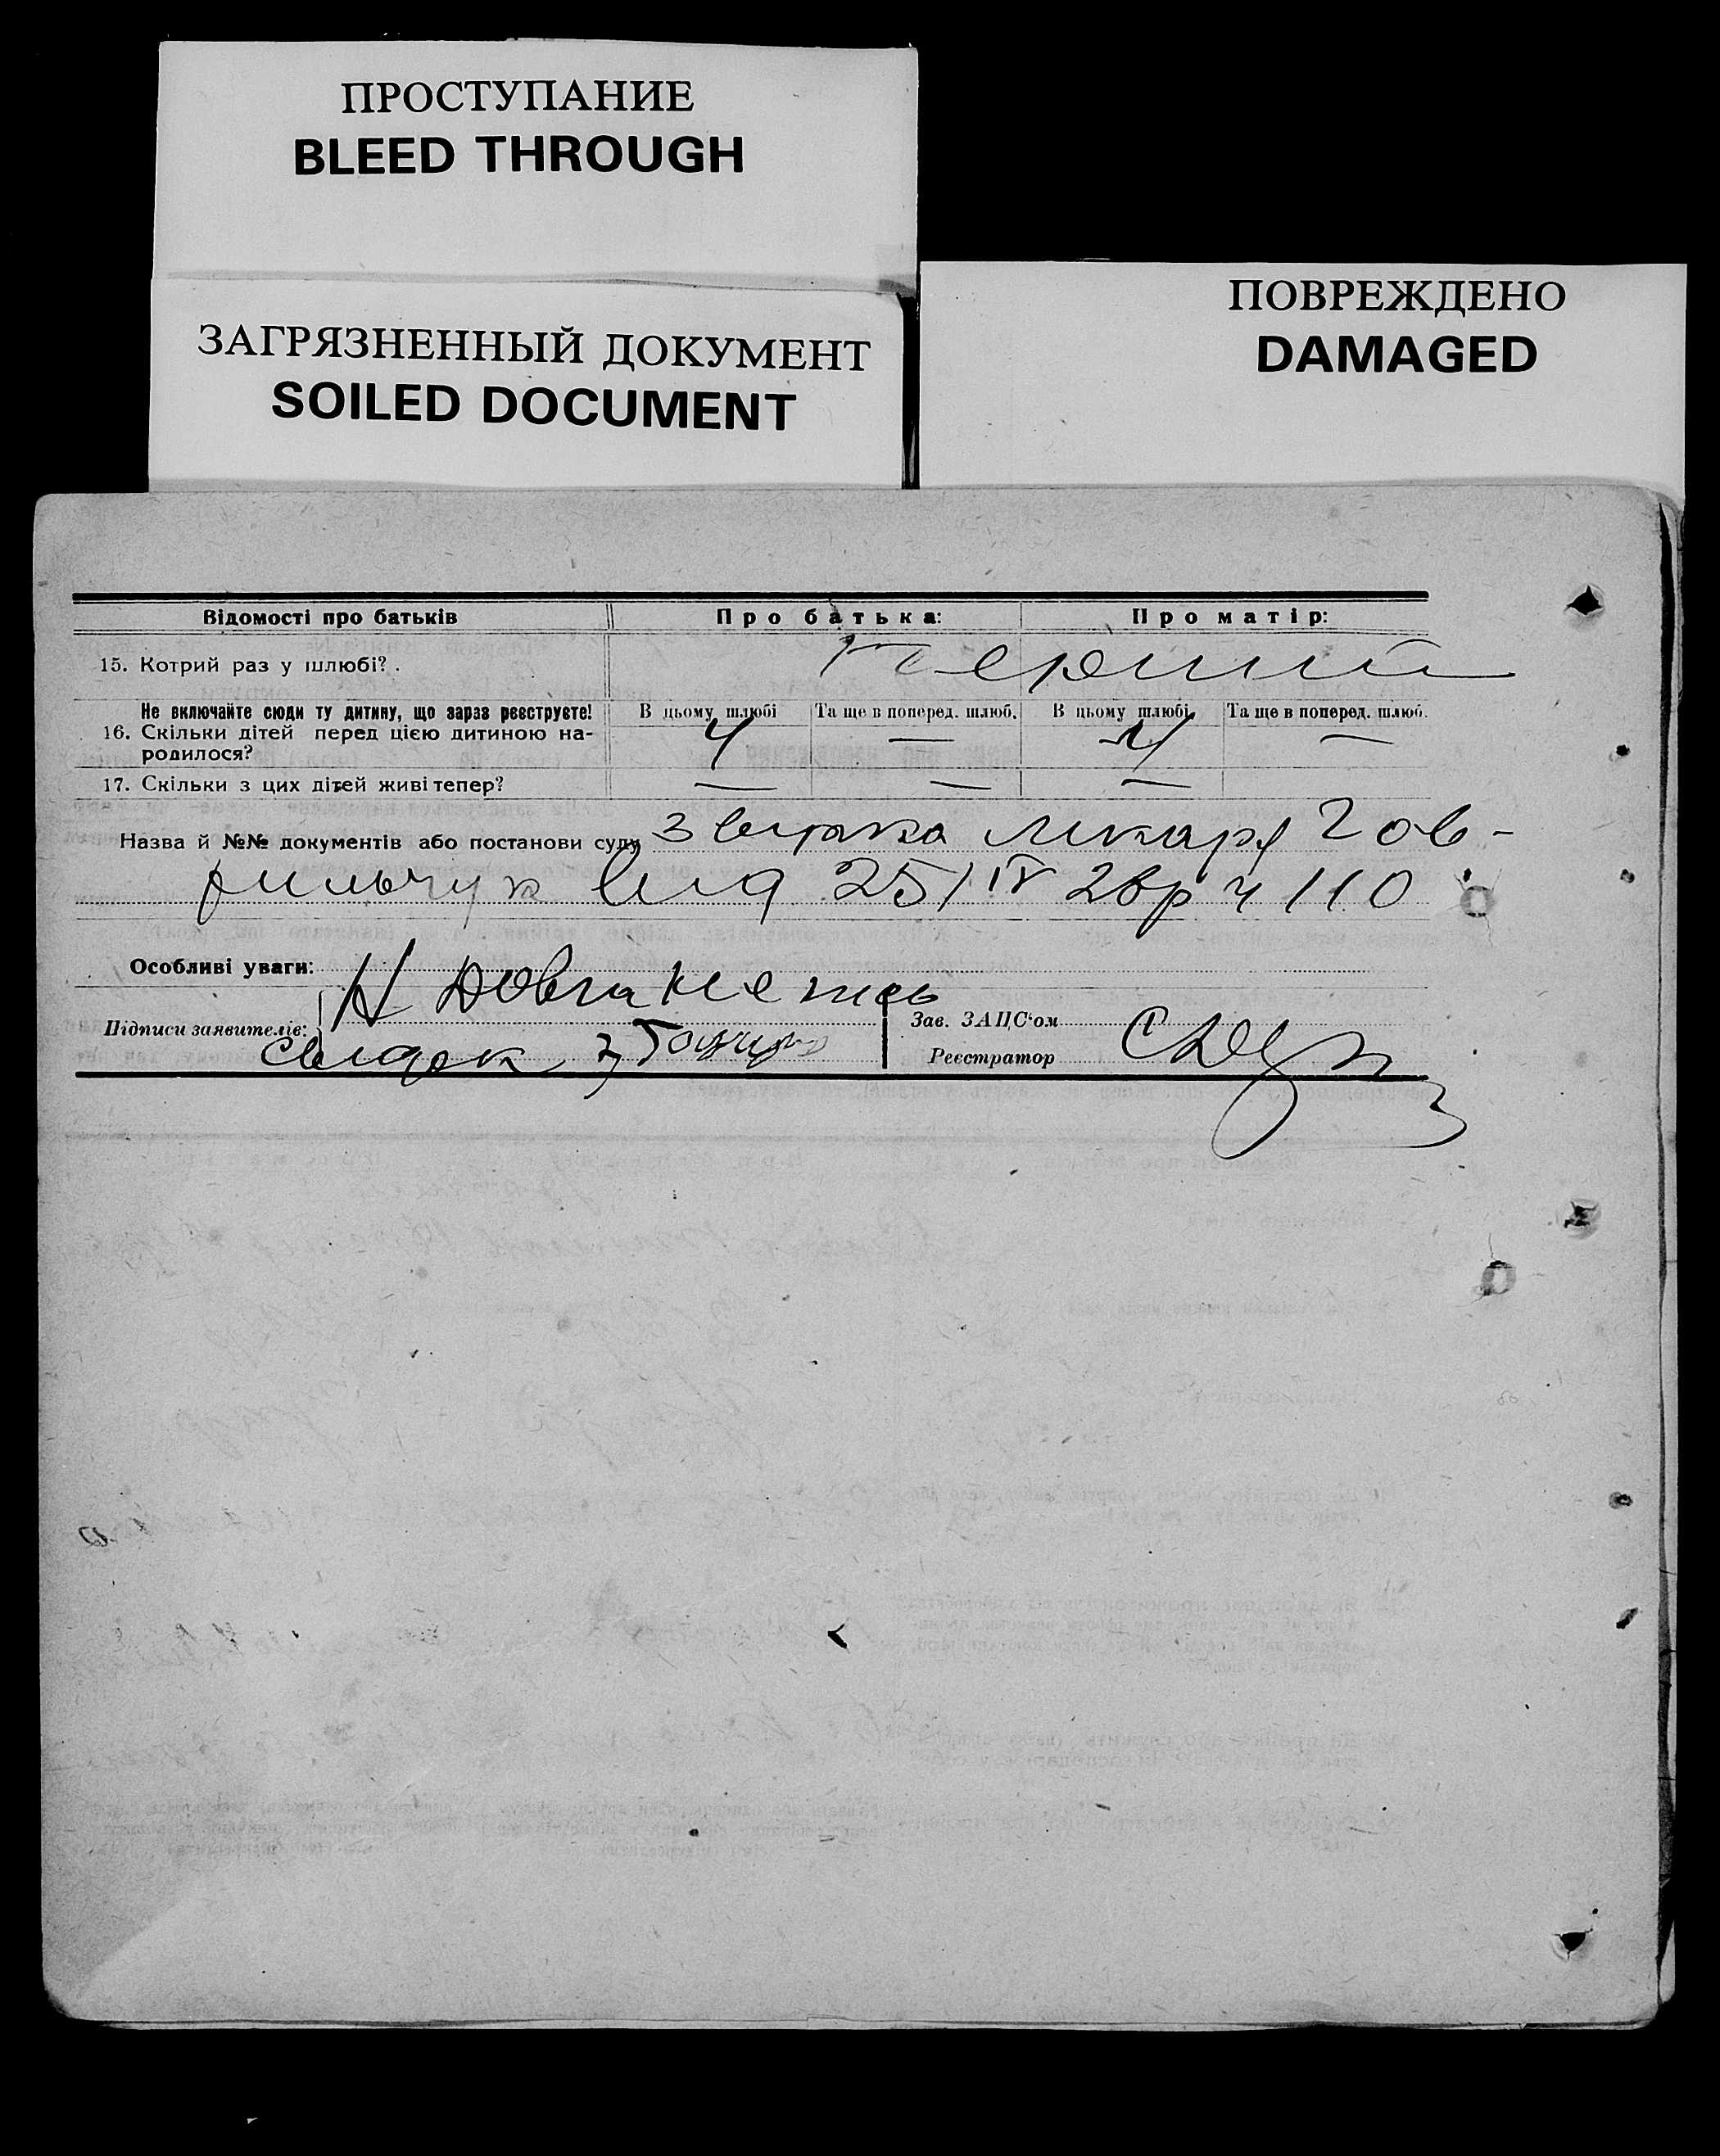 ПРОСТУПАНИЕ
BLEED THROUGH
ЗАГРЯЗНЕННЫЙ ДОКУМЕНТ
SOILED DOCUMENT
ПОВРЕЖДЕНО
DAMAGED
Відомості про батьків Про батька: Про матір:
15. Котрий раз у шлюбі? . перший
Не включайте сюди ту дитину, що зараз реєструєте! В цьому шлюбі Та ще в поперед. шлюб. В цьому шлюбі Та ще в поперед. шлюб.
16. Скільки дітей перед цією дитиною на- 4 — 4 —
родилося?
17. Скільки з цих дітей живі тепер? — — —
Назва й №№ документів або постанови суду лікаря
від 25/IV 28р ч 110
Особливі уваги:
Підписи заявителів: Зав. ЗАЦС'ом
свідок Реєстратор